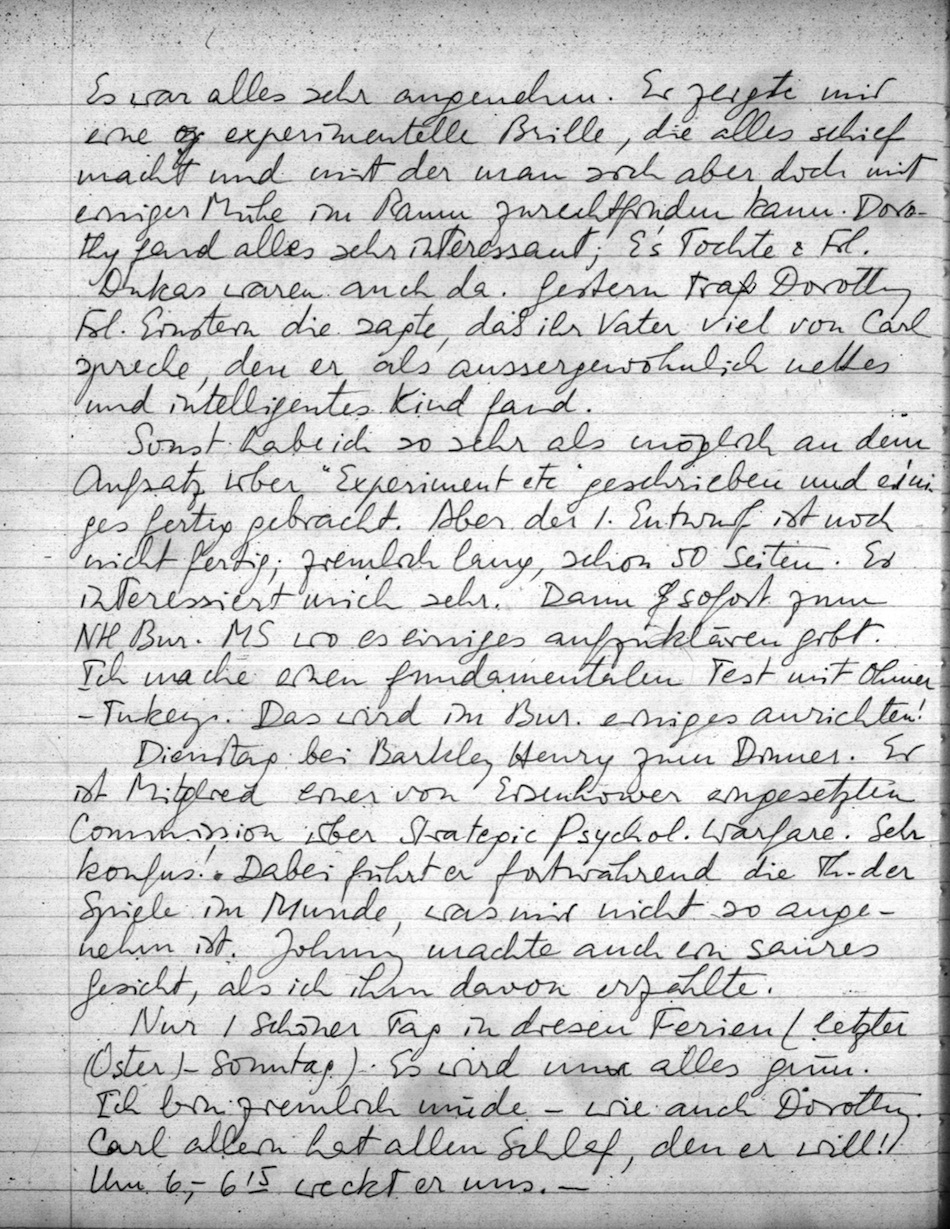 Es war alles sehr angenehm. Er zeigte mir
eine experimentelle Brille, die alles schief
macht und mit der man sich aber doch mit
einiger Mühe im Raum zurechtfinden kann. Doro-
thy fand alles sehr interessant; E's Tochte & Frl.
Dukas waren auch da. Gestern traf Dorothy
Frl. Einstein die sagte, daß ihr Vater viel von Carl
spreche, den er als aussergewöhnlich nettes
und intelligentes Kind fand.
Sonst habe ich so sehr als möglich an dem
Aufsatz über "Experiment etc" geschrieben und eini
ges fertig gebracht. Aber der 1. Entwurf ist noch
nicht fertig; ziemlich lang, schon 50 Seiten. Es
interessiert mich sehr. Dann sofort zum
NH Bur. MS wo es einiges aufzuklären gibt.
Ich mache einen fundamentalen Test mit
-Tukey. Das wird im Bur. einiges anrichten!
Dienstag bei Barkley Henry zum Dinner. Er
ist Mitglied einer von Eisenhower eingesetzten
Commission über Strategic Psychol. Warfare. Sehr
konfus! Dabei führt er fortwährend die Th. der
Spiele im Munde, was mir nicht so ange-
nehm ist. Johnny machte auch ein saures
Gesicht, als ich ihm davon erzählte.
Nur 1 schöner Tag in diesen Ferien (letzter
(Oster)-Sonntag). Es wird nun alles grün.
Ich bin ziemlich müde – wie auch Dorothy.
Carl allein hat allen Schlaf, den er will!!
Um 6,- 6 15 weckt er uns. —